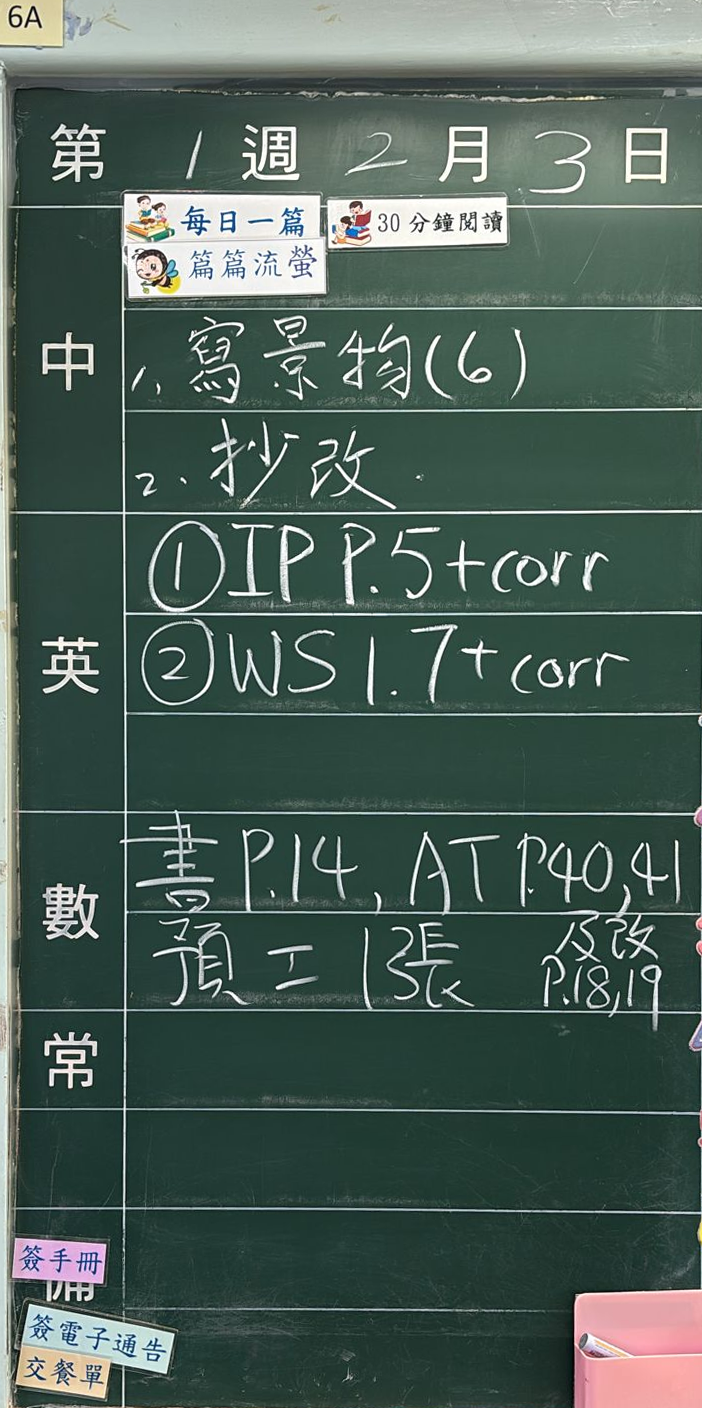 6A
第 1 週 2 月 3 日
每日一篇 30分鐘閱讀
篇篇流螢
中
1. 寫景物(6)
2. 抄改
英
① IP P.5+corr
② WS 1.7+corr
數
書 P.14, AT P.40,41
預工 1張 及改 P.18,19
常
簽手冊
備
簽電子通告
交餐單